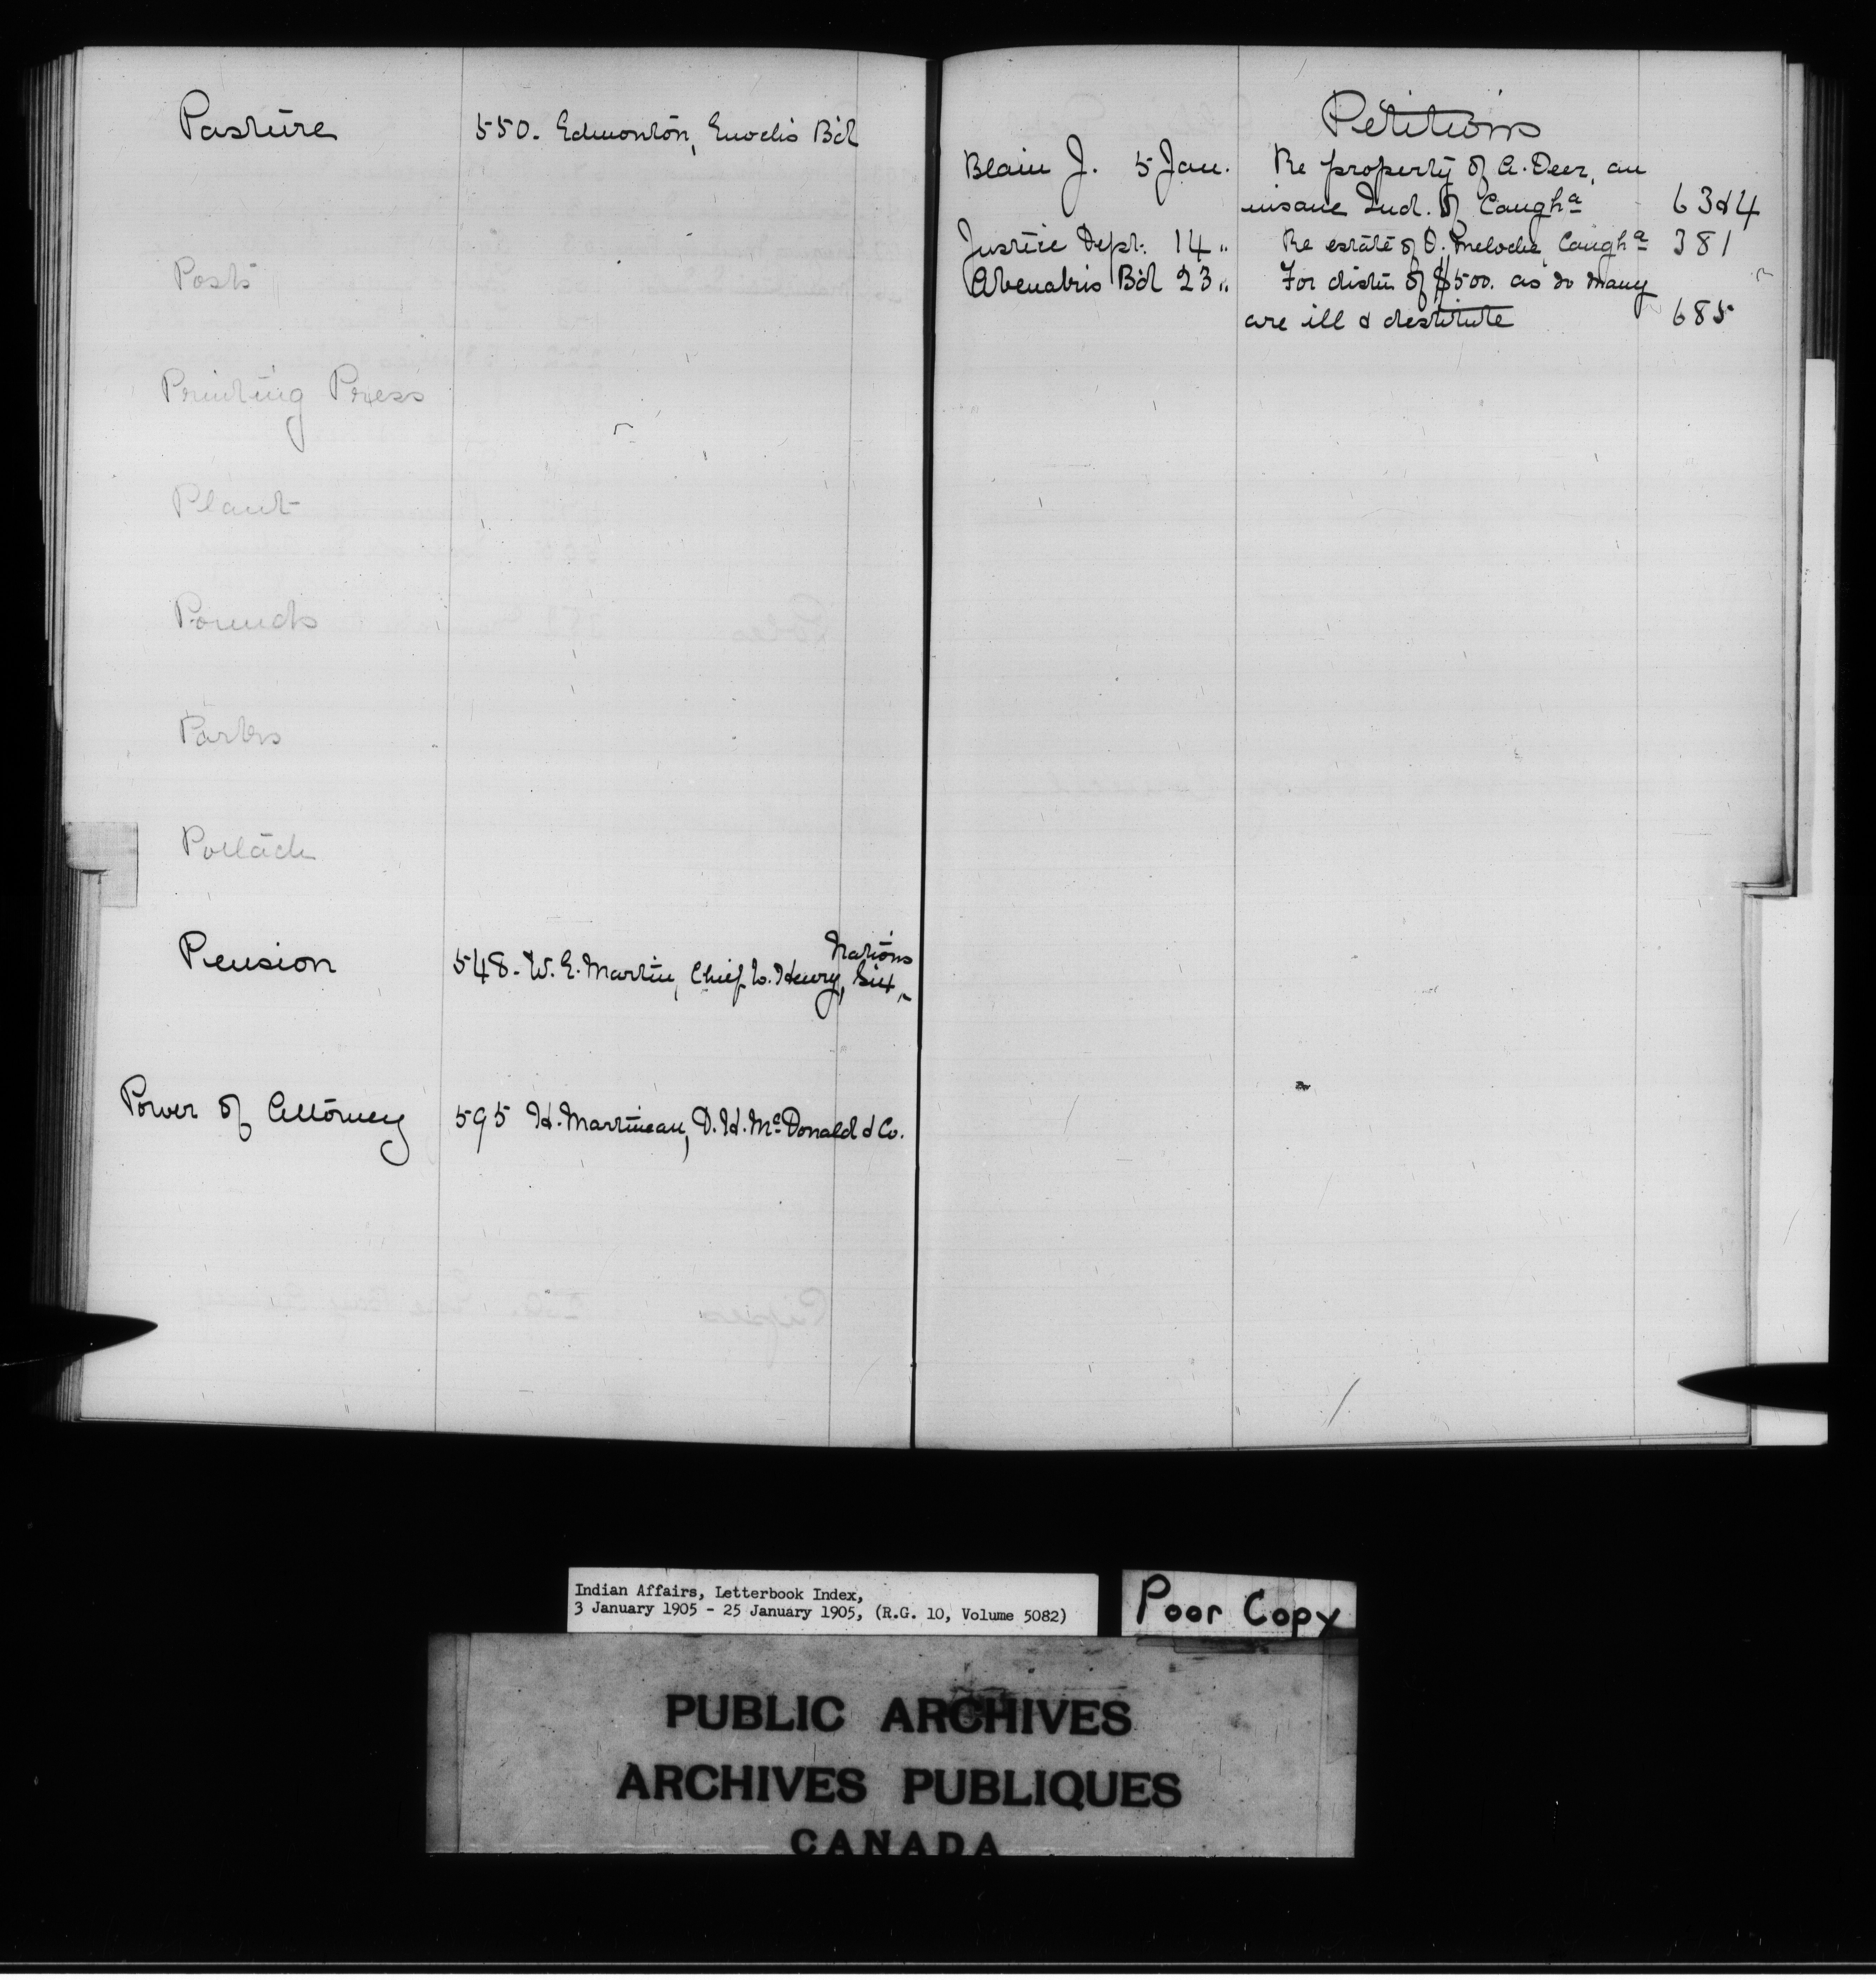 Pasture 550. Edmonton, Enochs Bd
Posts
Printing Press
Plant
Pounds
Parks
Potlach
Nations
Pension 548. W. E. Martin, Chief L. Henry, Six
Power of Attorney 595 H. Martineau, D. H. McDonald & Co.
Petitions
Blain J. 5 Jan. Re property of A. Deer, an
insane Ind. of Caugha 63&4
Justice Dept. 14 " Re estate of O. Meloche, Caugha 381
Abenakis Bd 23 " For distn of $500. as so many
are ill & destitute 685
Indian Affairs, Letterbook Index,
3 January 1905 - 25 January 1905, (R.G. 10, Volume 5082)
Poor Copy
PUBLIC ARCHIVES
ARCHIVES PUBLIQUES
CANADA